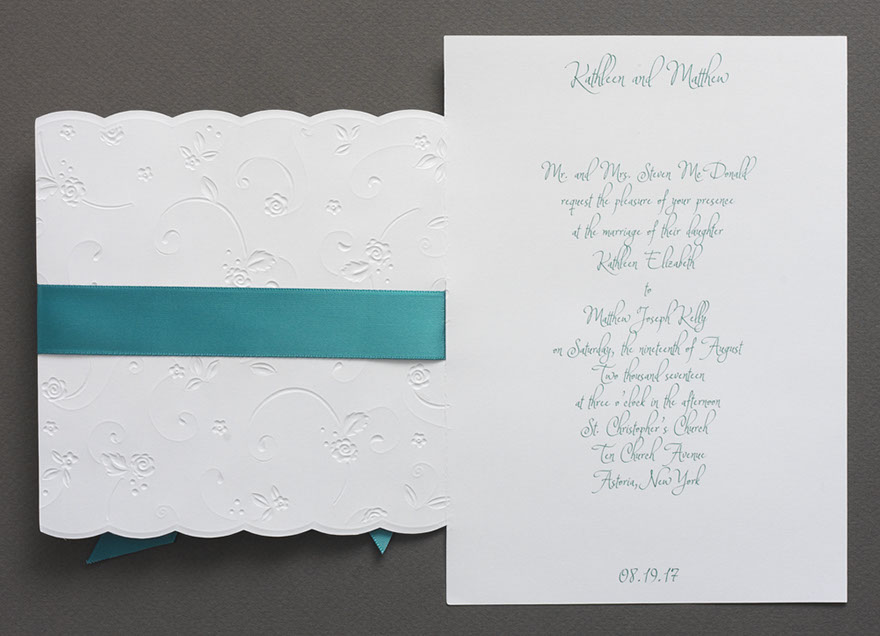 Kathleen and Matthew
Mr. and Mrs. Steven McDonald
request the pleasure of your presence
at the marriage of their daughter
Kathleen Elizabeth
to
Matthew Joseph Kelly
on Saturday, the nineteenth of August
Two thousand seventeen
at three o'clock in the afternoon
St. Christopher's Church
Ten Church Avenue
Astoria, New York
08.19.17